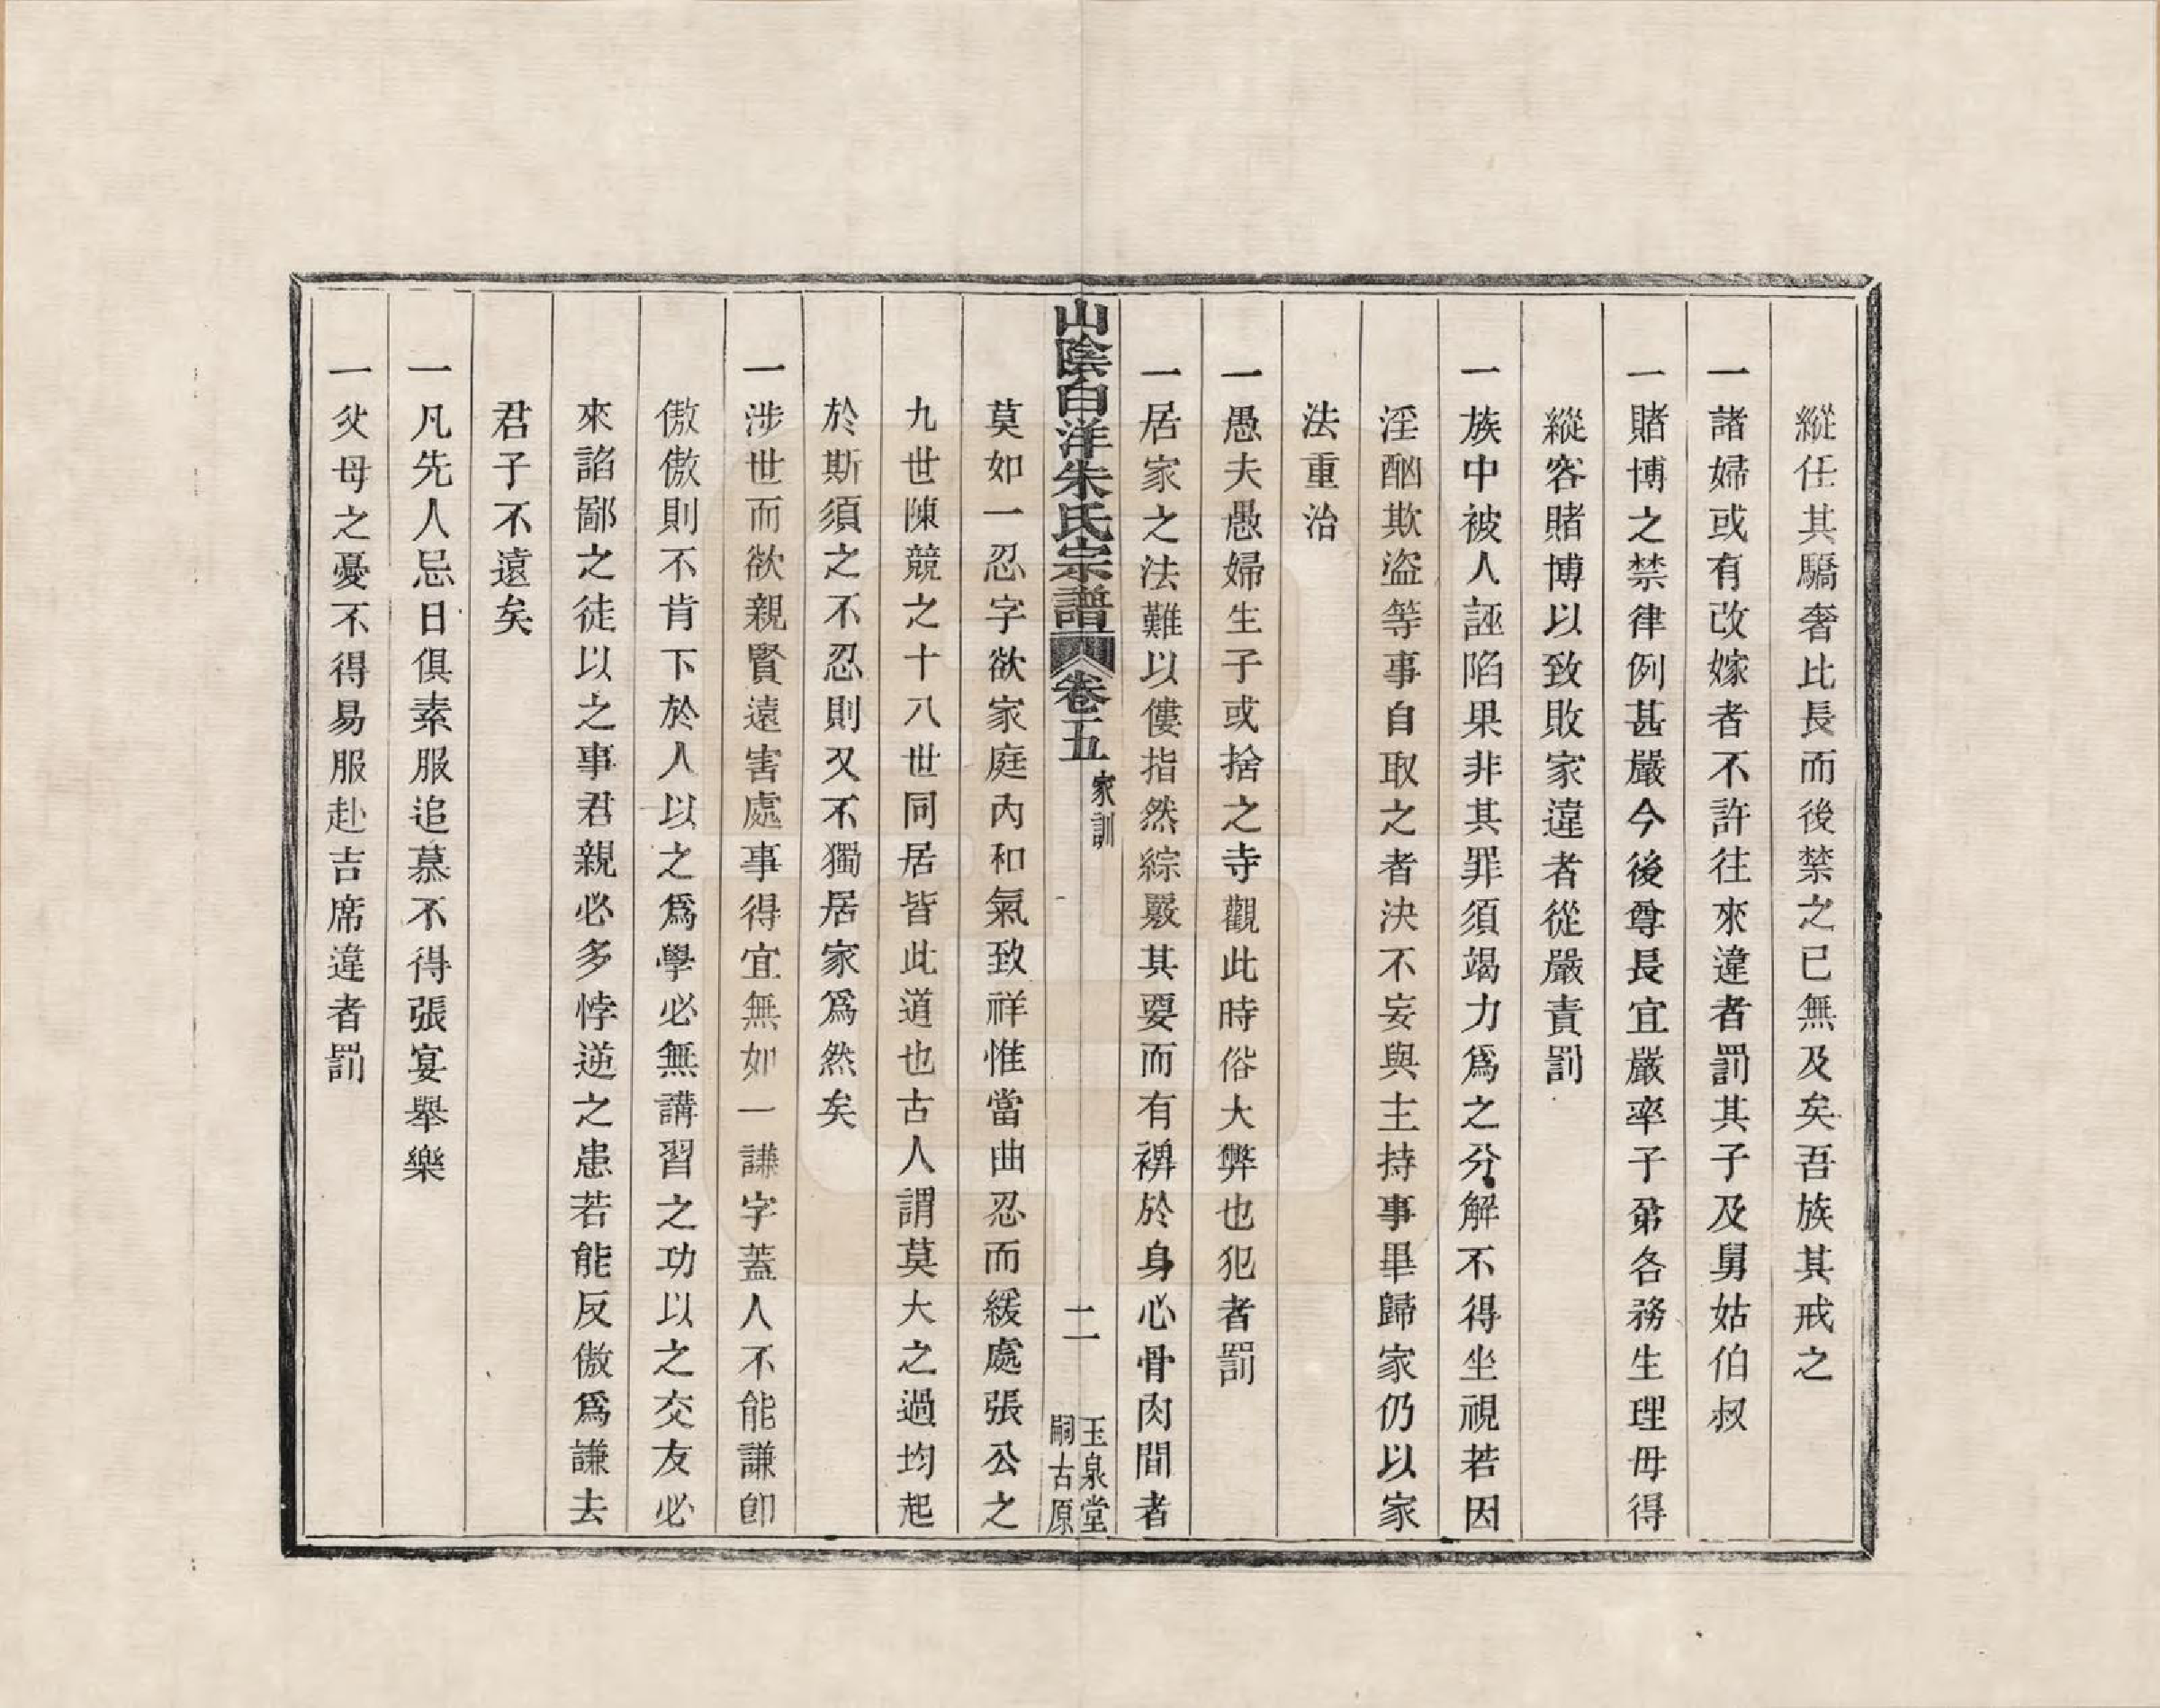 縱任其驕奢比長而後禁之已無及矣吾族其戒之
一諸婦或有改嫁者不許往來違者罰其子及舅姑伯叔
一賭博之禁律例甚嚴今後尊長宜嚴率子弟各務生理毋得
縱容賭博以致敗家違者從嚴責罰
一族中被人誣陷果非其罪須竭力爲之分解不得坐視若因
淫酗欺盜等事自取之者決不妄與主持事畢歸家仍以家
法重治
一愚夫愚婦生子或捨之寺觀此時俗大弊也犯者罰
一居家之法難以僂指然綜覈其要而有裨於身心骨肉間者
山陰白洋朱氏宗譜 卷五 家訓 二 玉泉堂 嗣古原
莫如一忍字欲家庭內和氣致祥惟當曲忍而緩處張公之
九世陳競之十八世同居皆此道也古人謂莫大之過均起
於斯須之不忍則又不獨居家爲然矣
一涉世而欲親賢遠害處事得宜無如一謙字蓋人不能謙卽
傲傲則不肯下於人以之爲學必無講習之功以之交友必
來諂鄙之徒以之事君親必多悖逆之患若能反傲爲謙去
君子不遠矣
一凡先人忌日俱素服追慕不得張宴舉樂
一父母之憂不得易服赴吉席違者罰